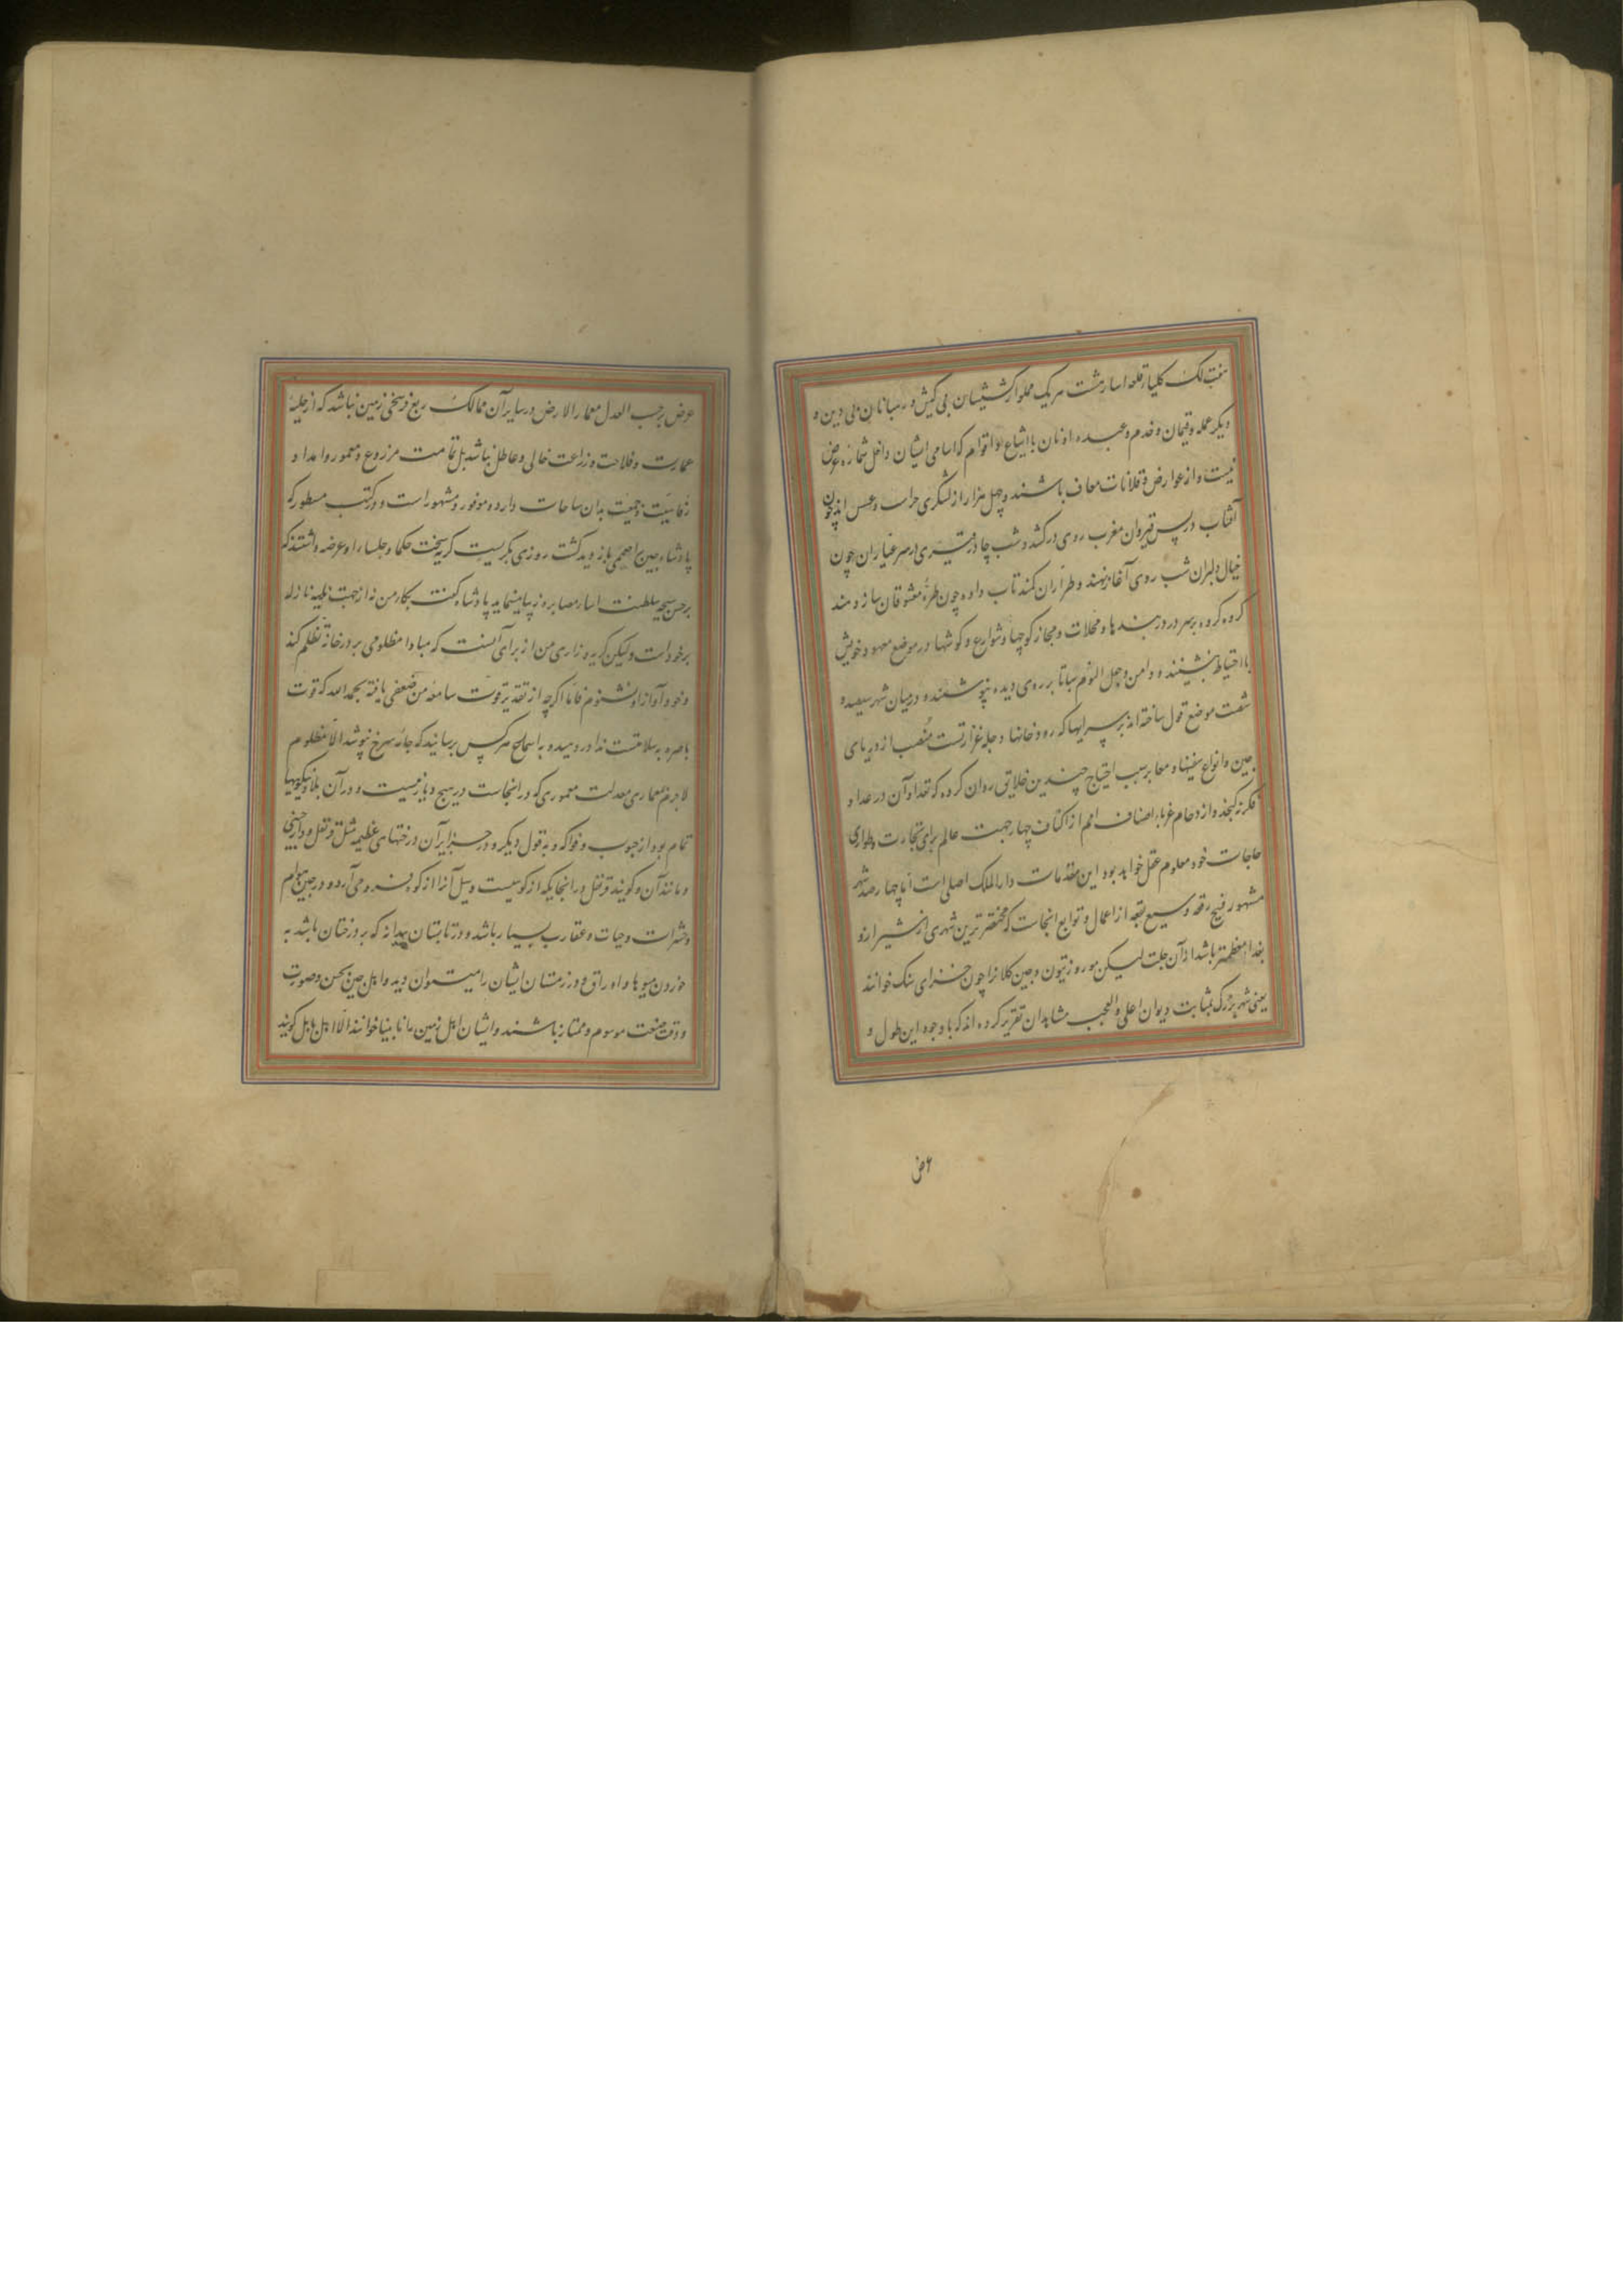 هفتصد کلیسا قلعه اسا رشت هریک مملو از کشیشان بی کیش و رهبانان بی دین و
دیگر عمله و قیمان و خدم و عبده اوثان با اشیاع و اقوام که اسامی ایشان داخل شماره عرض
نیست و از عوارض و قلانات معاف باشند و چهل هزار از لشکری حراس و عسس اند چون
آفتاب در پس قیروان مغرب روی درکشد و شب چادر قیری در سر عیاران چون
خیال دلبران شب روی آغاز نهند و طراران کمند تاب داده چون طره معشوقان ساز دهند
گروه گروه بر سر دربندها و محلات و مجاز کوچها و شوارع و گوشها در موضع معهود خویش
با احتیاط بنشینند و دامن وجعل النوم سباتا بر روی دیده نپوشند و در میان شهر سیصد و
شصت موضع قول ساخته اند بر سر آبها که رودخانها دجله غزارتست منصب از دریای
چین و انواع سفینها و معابر سبب احتیاج چندین خلایق روان کرده که تعداد آن در عداد
فکر نگنجد و ازدحام غرباء اصناف امم از اکناف چهار جهت عالم برای تجارت و طواری
حاجات خود معلوم عقل خواهد بود این مقدمات دارالملک اصلی است اما چهارصد شهر
مشهور فسیح رقعه وسیع بقعه از اعمال و توابع انجاست که مختصرترین شهری از شیراز و
بغداد معظمتر باشد از آن جملت لیکن مور و زیتون و چین کلان را چون خنزای سنک خوانند
یعنی شهر بزرگ بمثابت دیوان اعلی والعجب مشاهدان تقریر کرده اند که با وجود این طول و
عرض
عرض بر حسب العدل معمار الارض در سایر آن ممالک ربع فرسخی زمین نباشد که از حلیه
عمارت و فلاحت و زراعت خالی و عاطل باشد بل تمامت مزروع و معمور و امداد
رفاهیت و جمعیت بدان ساحات دارد و موفور و مشهور است و در کتب مسطور که
پادشاه چین را صممی بازدید گشت روزی بگریست گریه سخت حکما و جلساء او عرضه داشتند که
بر حسن سجیه سلطنت اسار مصابره زیبا مینماید پادشاه گفت بکاء من نه از جهت بلیه نازله
بر خود است ولیکن گریه و زاری من از برای آنست که مبادا مظلومی بر در خانه تظلم کند
و خود آواز او نشنوم فاما اگرچه از تقدیر قوت سامعه من ضعفی یافته بحمد الله که قوت
باصره بسلامتست ندا در دمید و به اسماع هرکس برسانید که جامه سرخ نپوشد الا مظلوم
لاجرم معماری معدلت معموری که در انجاست در هیچ دیار نیست و در آن بلاد نیکوییها
تمام بود از حبوب و فواکه و بقول دیگر و در جزایر آن درختهای عظیمه مثل قرنفل و دارچینی
و مانند آن و گویند قرنفل در انجا یکه از کوهیست و سیل آنرا از کوه فرو می آرد و در چین هوام
و حشرات و حیات و عقارب بسیار باشد و در تابستان بهدانه که بر درختان باشد به
خوردن میوها و اوراق و در زمستان ایشان را میتوان دید و اهل چین بحسن وصورت
و دقت صنعت موسوم و ممتاز باشند و ایشان اهل زمین را نابینا خوانند الا اهل بابل گویند